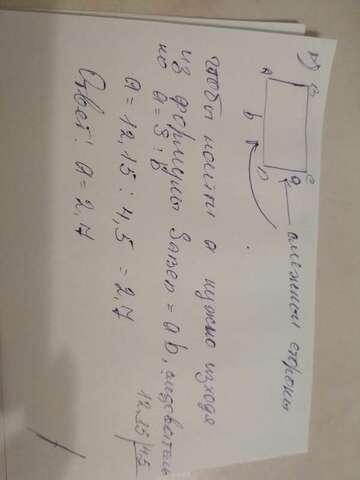 N1
B
C
A
D
b
a
смежный стороны
чтобы найти a нужно исходя
из формулы SABCD = ab, следователь
но a = S : b
a = 12,15 : 4,5 = 2,7
12,15 | 4,5
Ответ: a = 2,7